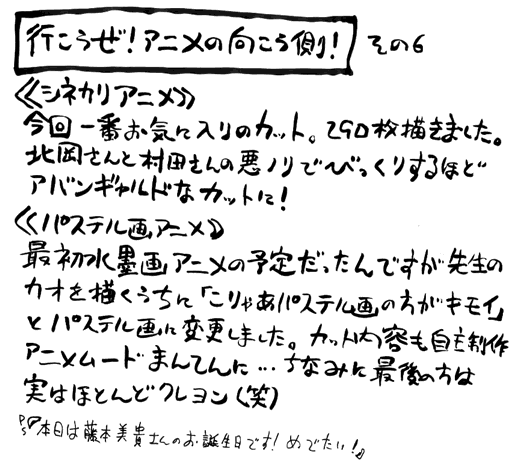 行こうぜ!アニメの向こう側! その6
《シネカリアニメ》
今回一番お気に入りのカット。290枚描きました。
北岡さんと村田さんの悪ノリでびっくりするほど
アバンギャルドなカットに!
《パステル画アニメ》
最初水墨画アニメの予定だったんですが先生の
カオを描くうちに「こりゃあパステル画の方がキモイ」
とパステル画に変更しました。カット内容も自主制作
アニメムードまんてんに…ちなみに最後の方は
実はほとんどクレヨン(笑)
PS『本日は藤本美貴さんのお誕生日です!めでたい!』